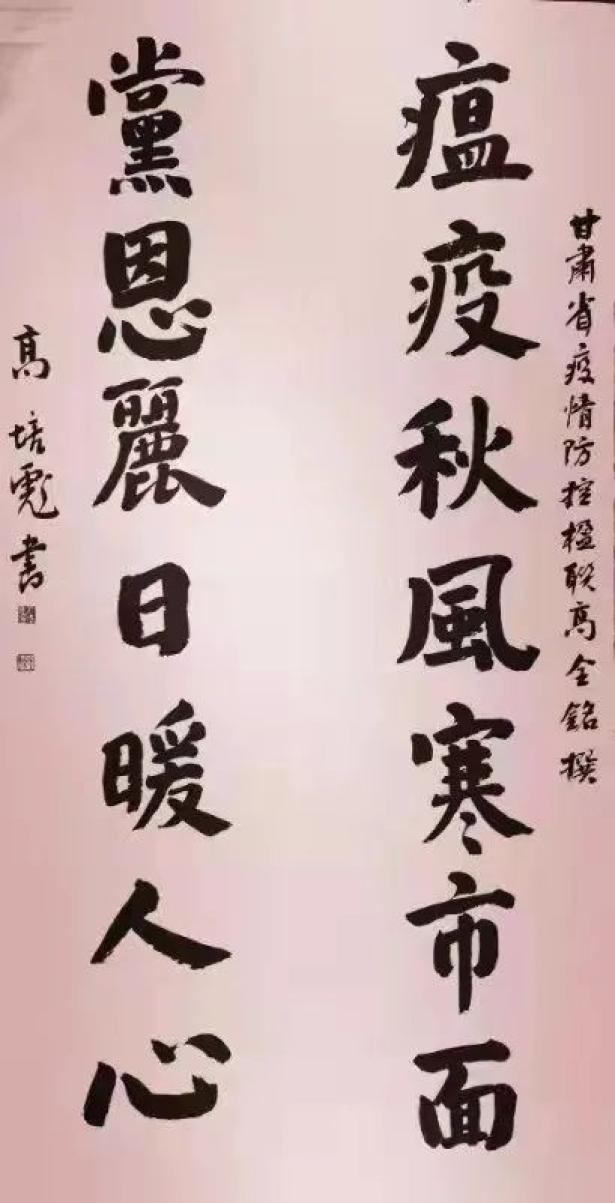 甘肅省疫情防控楹聯高全銘撰
瘟疫秋風寒市面
黨恩麗日暖人心
高培彪書